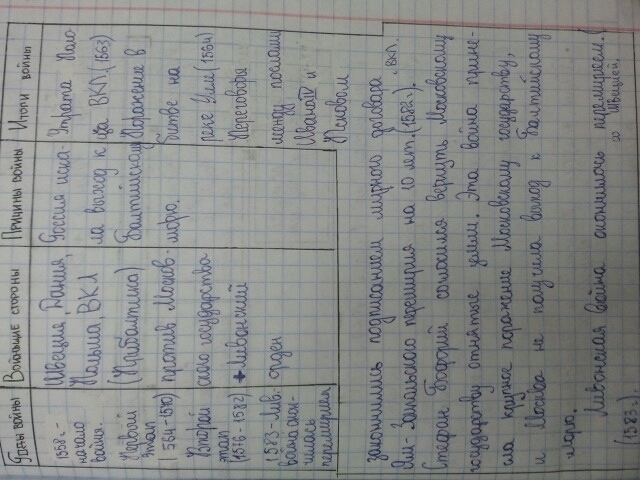 Годы войны
1558г.-
начало
войны.
Первый
этап
(1564-1570)
Второй
этап
(1576-1582)
1583-Лив.
война окон-
чилась
перемирием
Воюющие стороны
Швеция, Дания,
Польша, ВКЛ
(Прибалтика)
против Москов-
ского государства
+ Ливонский
орден
Причины войны
Россия иска-
ла выход к
Балтийскому
морю.
Итоги войны
Утрата Поло-
цка ВКЛ (1563)
Поражение в
битве на
реке Улле (1564)
Переговоры
между послами
Ивана IV и
Псковом
закончились подписанием мирного договора
Ям-Запольского перемирия на 10 лет (1582г.). ВКЛ.
Стефан Баторий согласился вернуть Московскому
государству отнятые у него земли. Эта война прине-
сла крупное поражение Московскому государству,
и Москва не получила выход к Балтийскому
морю.
Ливонская война окончилась перемирием
(1583г.) со Швецией.